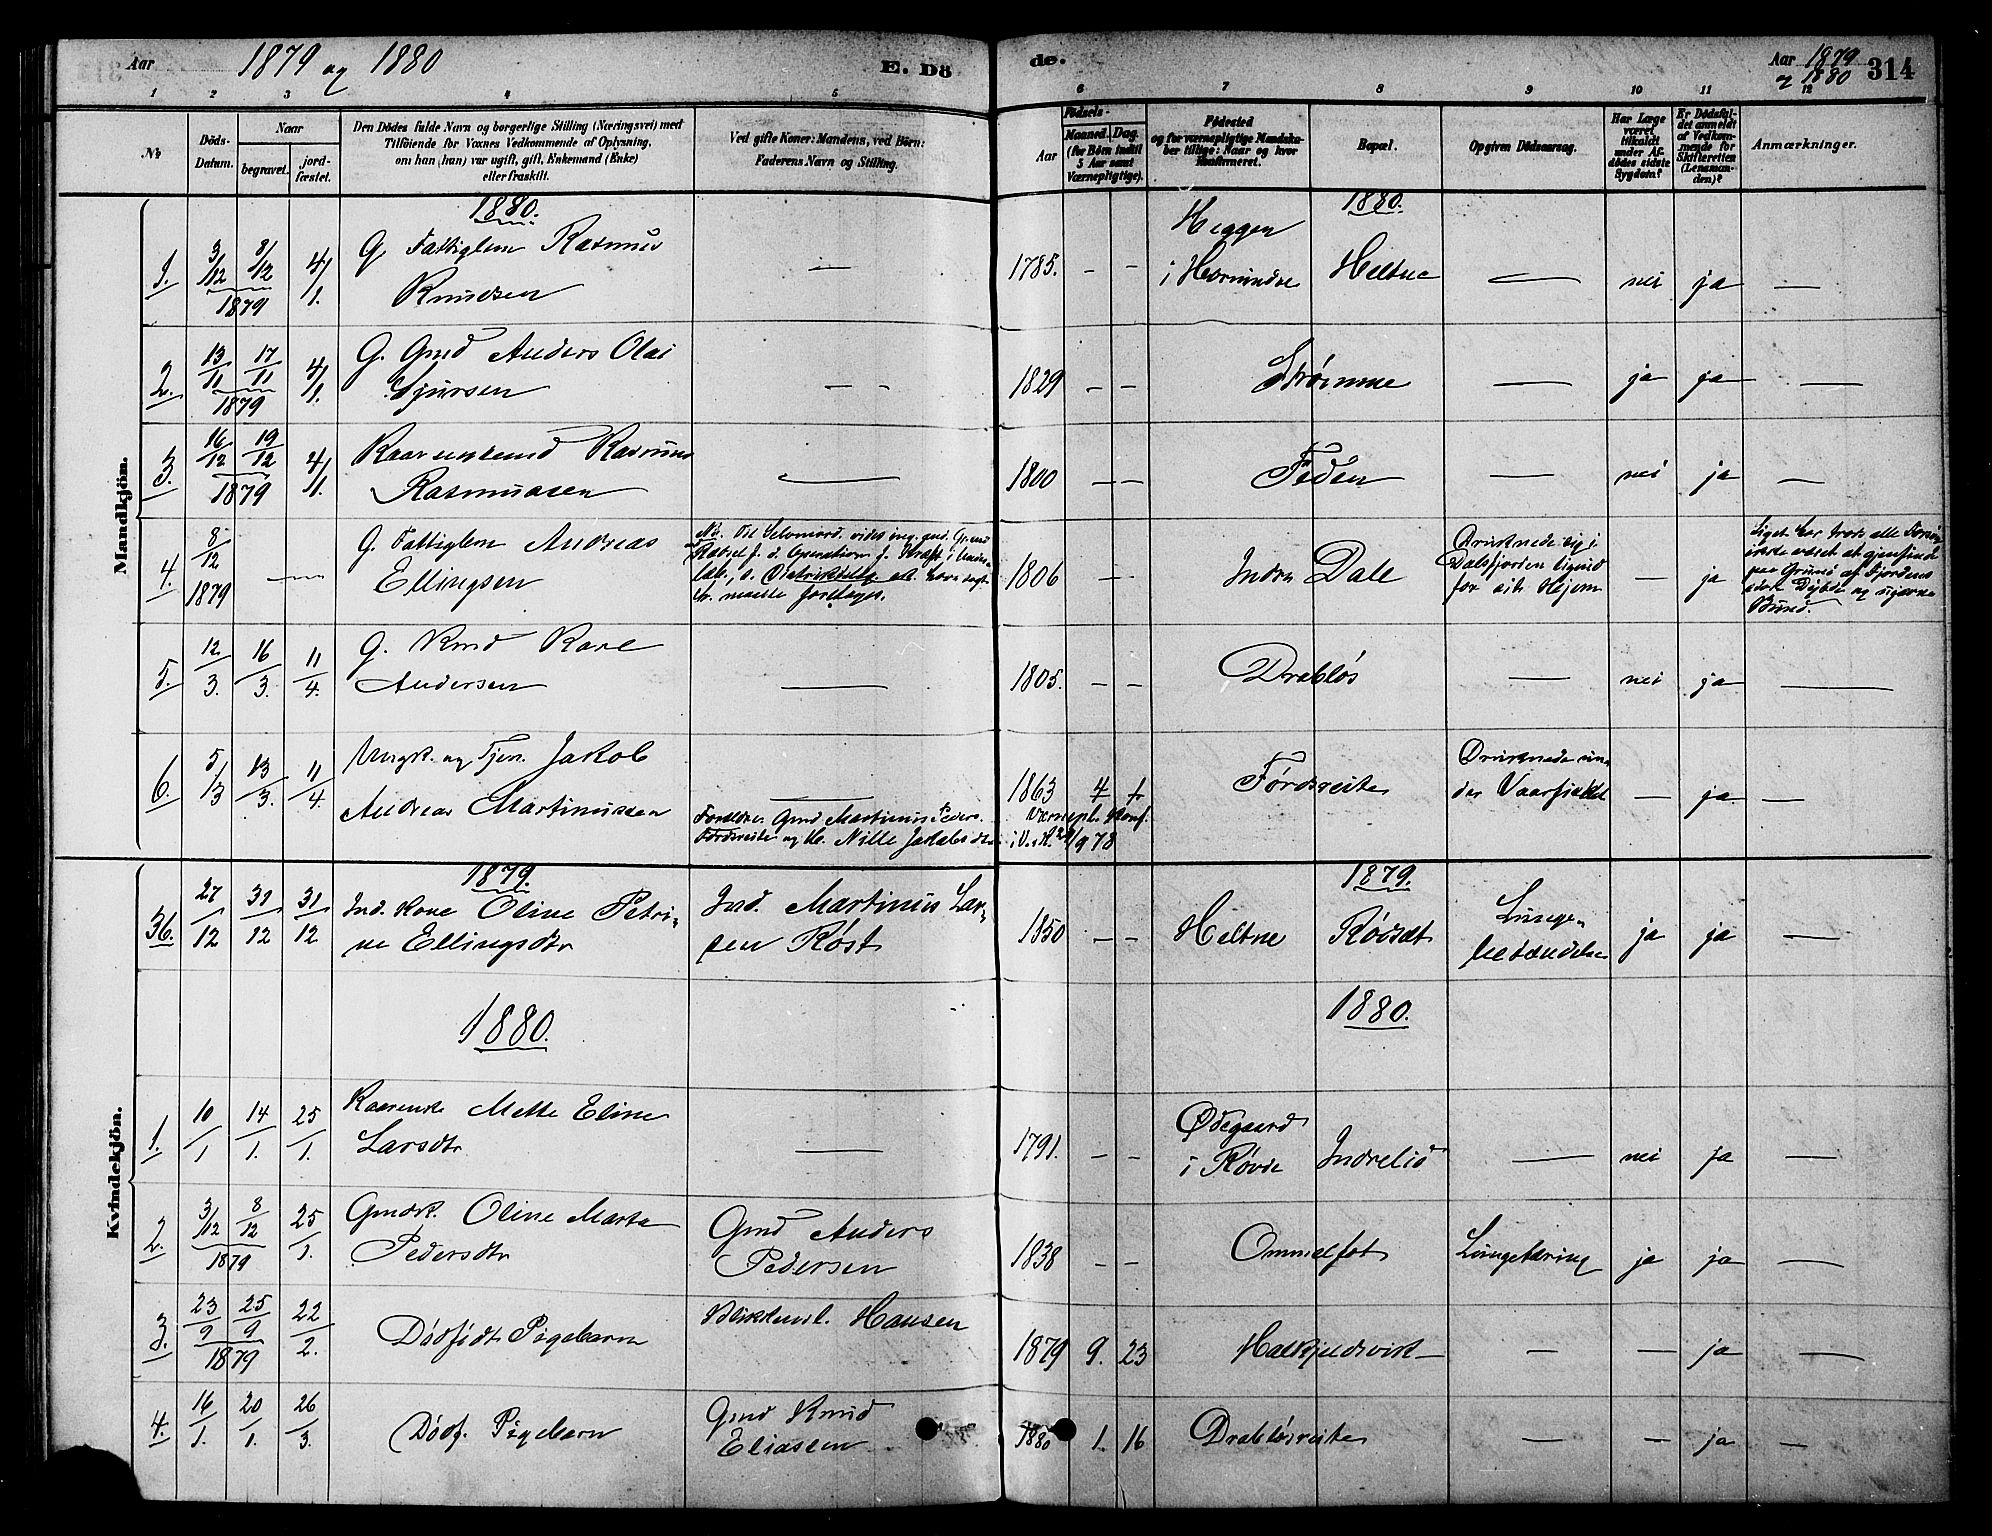 Aar 1879 og 1880 E. Dö de. Aar 1879 314
1880
1 2 3 4 5 6 7 8 9 10 11 12
No
Döds-
Datum.
Naar
begravet.
jord-
fæstet.
Den Dödes fulde Navn og borgerlige Stilling (Næringsvei) med
Tilföiende för Voxnes Vedkommende af Oplysning,
om han (hun) var ugift, gift, Enkemand (Enke)
eller fraskilt.
Ved gifte Koner: Mandens, ved Börn:
Faderens Navn og Stilling.
Födsels-
Aar
Maaned. Dag.
(for Børn indtil
5 Aar samt
Værnepligtige).
Födested
og for værnepligtige Mandska-
ber tillige: Naar og hvor
konfirmeret.
Bopæl.
Opgiven Dödsaarsag.
Har Læge
været
tilkaldt
under Af-
dödes sidste
Sygdom?
Er Dödsfal-
det anmeldt
af Vedkom-
mende for
Skifteretten
(Lensman-
den)?
Anmærkninger.
Mandkjön.
1880. 1880.
1. 3/12 8/12 1879 4/1. G. Fattiglem Rasmus
Knudsen — 1785. - - Heggen
i Hesnundre Heltne — nei ja —
2. 13/11 17/11 1879 4/1. G. Gmd Anders Olai
Sjursen — 1829 - - Strømme — ja ja —
3. 16/12 19/12 1879 4/1. Kaarenkemd Rasmus
Rasmussen — 1800 - - Feden — nei ja —
4. 8/12 1879 — G. Fattiglem Andreas
Ellingsen
1806 - - Indre Dale
Druknede sig i
Dalsfjorden ligeud
for sit Hjem — ja
Liget har trods alle
5. 12/3. 16/3. 11/4. G. Kmd Karl
Andersen — 1805. - - Drabløs — nei ja —
6. 5/3 13/3. 11/4. Ungk. og Tjen. Jakob
Andreas Martinussen —
Forældre: Gmd Martinus Peders.
Førdsreite og H. Nille Jakobsdtr.
1863 4 Førdsreite
Værnepl. Konf.
Druknede un-
der Vaarfisket — ja —
Kvindekjön.
1879. 1879.
36. 27/12 31/12 31/12 Ind. Kone Oline Petri-
ne Ellingsdtr Ind. Martinus Lar-
sen Røst 1850 - - Heltne Røvset Lunge-
betændelse ja ja —
1880. 1880.
1. 10/1 14/1. 25/1. Kaarenke Mette Eline
Larsdtr — 1791. - - Ødegaard
i Røvde Indrelid — nei ja —
2. 3/12 8/12 1879 25/1. Gmdk. Oline Marta
Pedersdtr Gmd Anders
Pedersen 1838 - - Ommelfot Lungetæring ja ja —
3. 23/9 25/9 1879 22/2. Dødfødt Pigebarn Hansen 1879 9. 23 Halkjelsvik — — ja —
4. 16/1. 20/1. 26/3. Dødf. Pigebarn Gmd Knud
Eliassen 1880 1. 16 Drabløsreite — — ja —